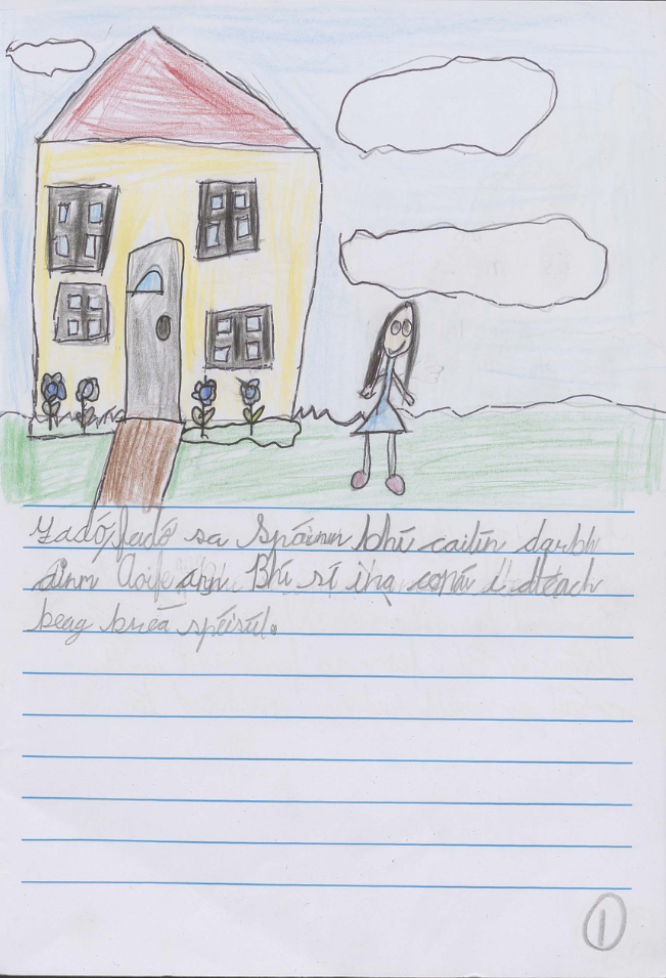 Fadó, fadó sa Spáinn bhí cailín darbh
ainm Aoife ann. Bhí sí ina conaí i dteach
beag breá spéisiúl.
1